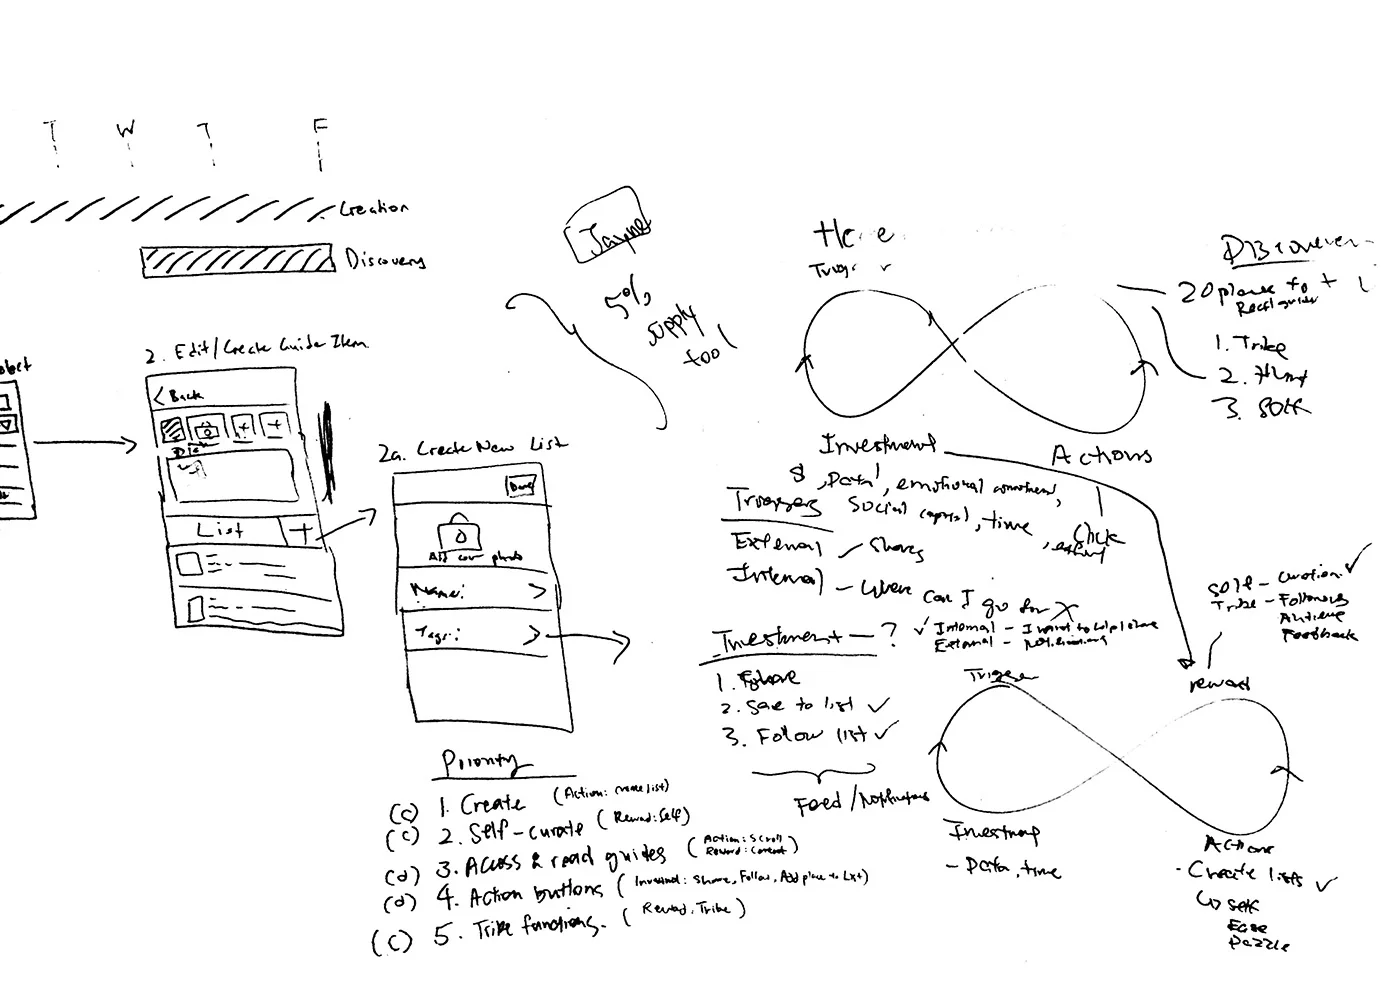 T W T F
Creation
Discovery
2. Edit/Create Guide Item
< Back
List +
2a. Create New List
Done
Add cover photo
Name: >
Tags: >
Jayne
5%
supply
tool
Priority
(c) 1. Create (Action: create list)
(c) 2. Self-curate (Reward: Self)
(d) 3. Access & read guides (Action: Scroll
Reward: Content)
(d) 4. Action buttons (Investment: Share, Follow, Add place to List)
(c) 5. Tribe functions. (Reward, Tribe)
Trigger
Investment
Actions
$, Data, emotional commitment,
social capital, time
Click
Triggers
External - Shares
Internal - Where can I go for X
Investment - ?
✓ Internal - I want to help/share
External - Notifications
1. Share
2. Save to list ✓
3. Follow list ✓
Feed/Notifications
20 places to
Read guides
1. Tribe
2. Hunt
3. Self
Self - Curation ✓
Tribe - Followers
Audience
Feedback
Trigger
reward
Investment
- Data, time
Actions
- Create lists ✓
Self
Ease
Dazzle